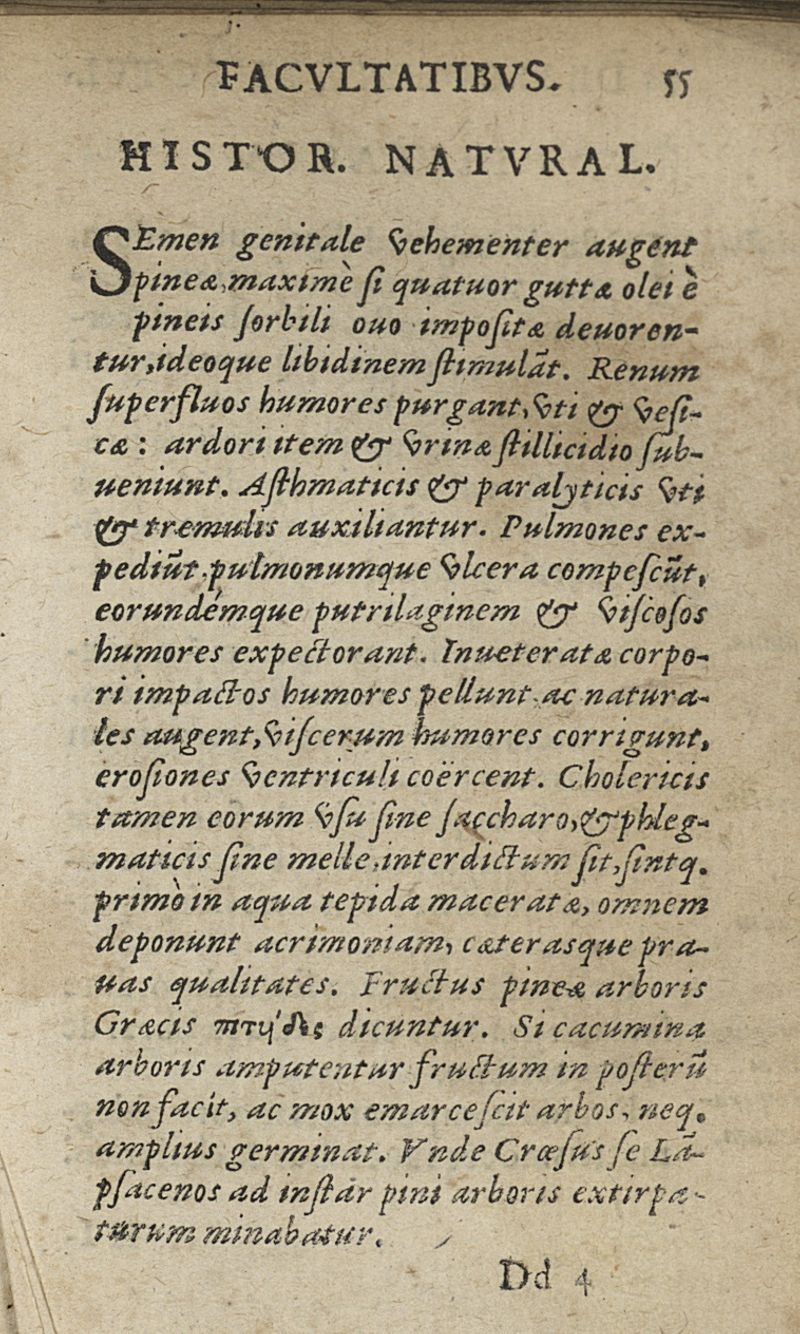 FACVLTATIBVS. 55
HISTOR. NATVRAL.
SEmen genitale vehementer augent
pineæ, maximè ſi quatuor guttæ olei è
pineis ſorbili ouo impoſitæ deuoren-
tur, ideoque libidinem ſtimulãt. Renum
ſuperfluos humores purgant, vti & veſi-
cæ: ardori item & vrinæ ſtillicidio ſub-
ueniunt. Aſthmaticis & paralyticis vti
& tremulis auxiliantur. Pulmones ex-
pediũt, pulmonumque vlcera compeſcũt,
eorundémque putrilaginem & viſcoſos
humores expectorant. Inueteratæ corpo-
ri impactos humores pellunt, ac natura-
les augent, viſcerum humores corrigunt,
eroſiones ventriculi coërcent. Cholericis
tamen eorum vſu ſine ſaccharo, & phleg-
maticis ſine melle, interdictum ſit, ſintq.
primò in aqua tepida maceratæ, omnem
deponunt acrimoniam, cæterasque pra-
uas qualitates. Fructus pineæ arboris
Græcis dicuntur. Si cacumina
arboris amputentur fructum in poſterũ
non facit, ac mox emarceſcit arbos, neq.
amplius germinat. Vnde Crœſus ſe Lã-
pſacenos ad inſtar pini arboris extirpa-
turum minabatur.
Dd 4